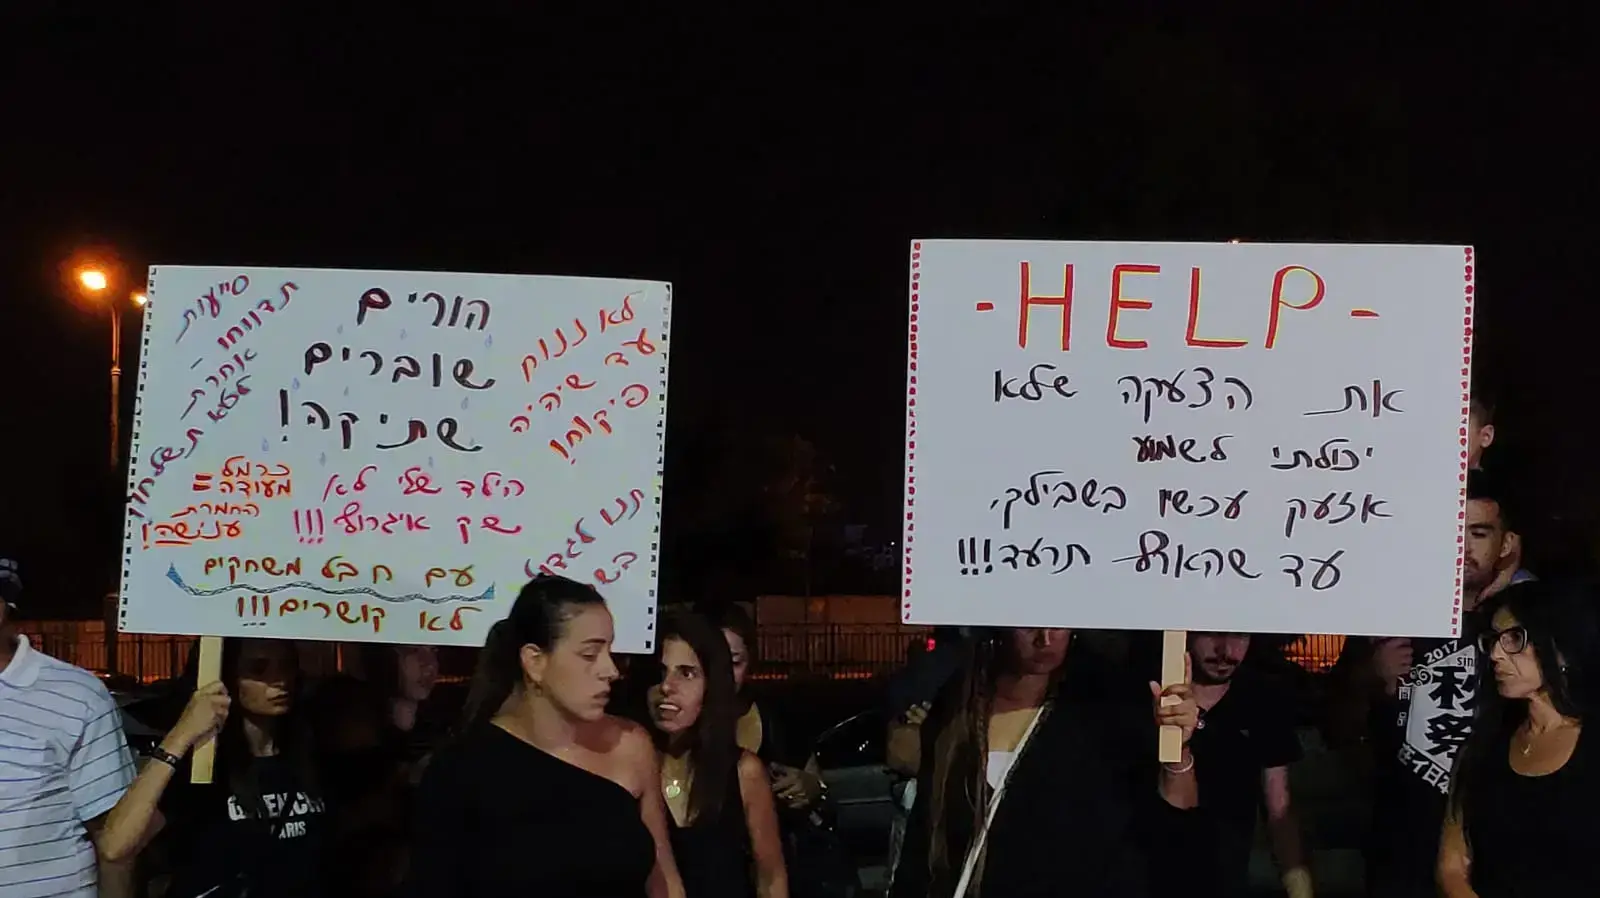 סייעות
תדווחו -
אחרת
ללא תשלחון
הורים
שוברים
שתיקה!
לא ננוח
עד שיהיה
פיקוח!
כרמל
מעודה =
החמרת
ענישה!
הילד שלי לא
שק איגרוף!!!
תנו לגדול
עם חבל משחקים
לא קושרים!!!
-HELP-
את הצעקה שלא
יכולתי לשמוע
אזעק עכשיו בשבילך,
עד שהארץ תרעד!!!
PARIS
2017